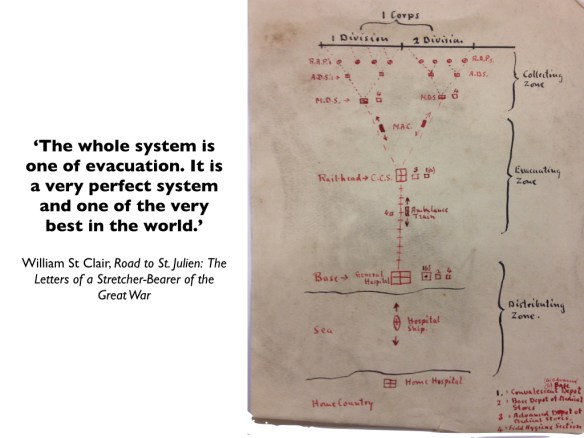 ‘The whole system is
one of evacuation. It is
a very perfect system
and one of the very
best in the world.’
William St Clair, Road to St. Julien: The
Letters of a Stretcher-Bearer of the
Great War
1 Corps
1 Division
1 Division
R.A.P's
R.A.P's
A.D.S's
A.D.S.
Collecting
Zone
M.D.S.
4
M.D.S.
4
M.A.C.
Evacuating
Zone
Railhead → C.C.S.
3
1(a)
4
Ambulance
Train
Base → General
Hospital
1(b)
2
4
Distributing
Zone.
Sea
Hospital
Ship.
Home Hospital
Home Country
(a) Advanced
(b) Base
1. = Convalescent Depot
2 = Base Depot of Medical
Stores
3 = Advanced Depot of
Medical Stores.
4 = Field Hygiene Section